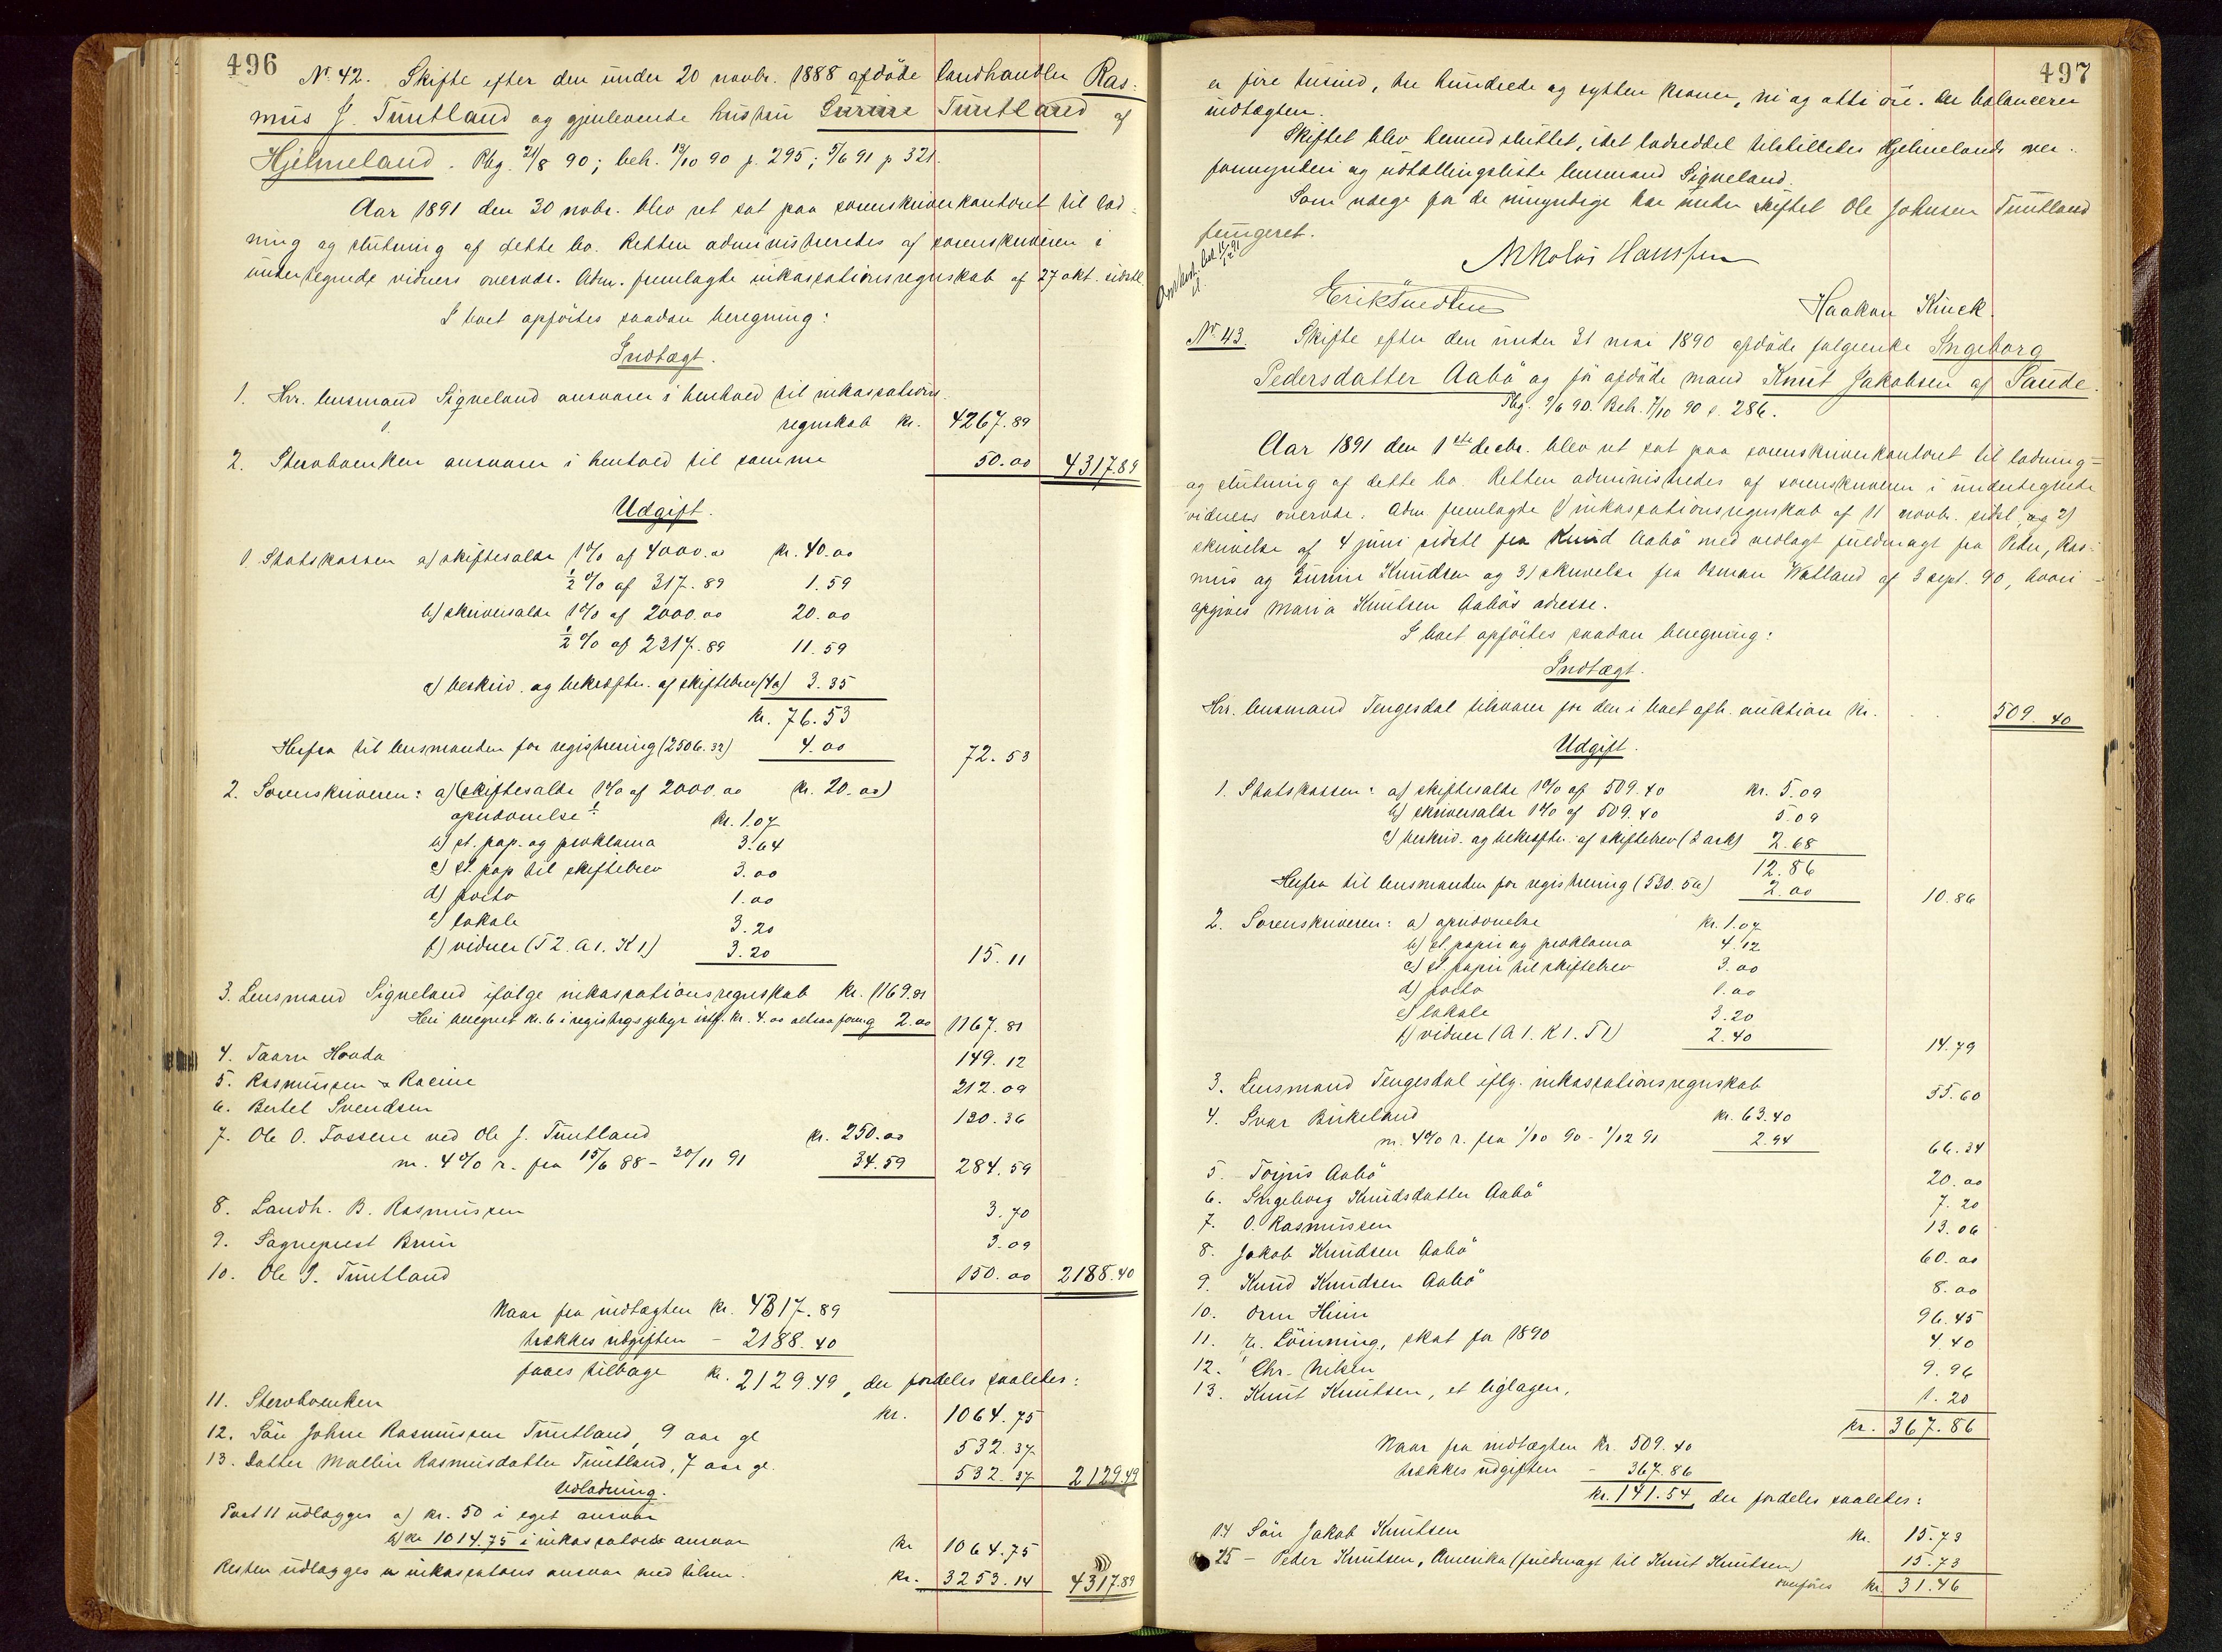 496
No 42. Skifte efter den under 20 novbr. 1888 afdöde landhandler Ras-
mus J. Tuntland og gjenlevende hustru Gurine Tuntland af
Hjelmeland. Rbg. 21/8 90; beh. 13/10 90 p. 295; 5/6 91 p 321.
Aar 1891 den 30 novbr. blev ret sat paa sorenskriverkontoret til lod-
ning og slutning af dette bo. Retten administreredes af sorenskriveren i
undertegnede vidners overvær. Adm. fremlagte inkassationsregnskab af 27 okt. sidstl.
I boet opförtes saadan beregning:
Indtægt.
1. Hr. lensmand Sigveland ansvarer i henhold til inkassations-
regnskab kr. 4267.89
2. Stervboenken ansvarer i henhold til samme 50.00 4317.89
Udgift.
1. Statskassen a) skiftesalær 1% af 4000.00 kr. 40.00
½ % af 317.89 1.59
b) skriversalær 1% af 2000.00 20.00
½ % af 2317.89 11.59
c) beskriv. og bekræftn. af skiftebrev (4a) 3.35
kr. 76.53
Herfra til lensmanden for registrering (2506.32) 4.00 72.53
2. Sorenskriveren: a) (skiftesalær 1% af 2000.00 kr. 20.00)
kr. 1.07
b) st. pap. og proklama 3.64
c) st. pap til skiftebrev 3.00
d) porto 1.00
e) lokale 3.20
f) vidner (T 2. A 1. K 1) 3.20 15.11
3. Lensmand Sigveland ifölge inkassationsregnskab kr. 1169.81
Heri beregnet kr. 6 i registrgsgebyr kr. 4.00 altsaa 2.00 1167.81
4. Taarn Houda 149.12
5. Rasmussen & Racine 212.09
6. Bertel Svendsen 130.36
7. Ole O. Fossene ved Ole J. Tuntland kr. 250.00
m. 4% r. fra 15/6 88 - 30/11 91 34.59 284.59
8. Landh. B. Rasmussen 3.70
9. Sogneprest Bruun 3.09
10. Ole J. Tuntland 150.00 2188.40
Naar fra indtægten kr. 4317.89
trækkes udgiften - 2188.40
faaes tilbage kr. 2129.49, der fordeles saaledes:
11. Stervboenken kr. 1064.75
12. Sön Johne Rasmussen Tuntland, 9 aar gl 532.37
13. Datter Mallin Rasmusdatter Tuntland, 7 aar gl. 532.37 2129.49
Udlodning.
Post 11 udlægges a) kr. 50 i eget ansvar
b) kr 1014.75 i inkassators ansvar kr 1064.75
Resten udlægges i inkassators ansvar med kr. 3253.14 4317.89
497
er fire tusind, tre hundrede og sytten kroner, ni og otti öre. der balancerer
indtægten.
Skiftet blev hermed sluttet, idet lodseddel tilstilledes Hjelmelands over-
formynderi og udtællingsliste lensmand Sigveland.
Som værge for de umyndige har under skiftet Ole Johnsen Tuntland
fungeret.
Nikolai Hanssen
Haakon Kinck.
No 43. Skifte efter den under 31 mai 1890 afdöde folgeenke Ingeborg
Pedersdatter Aabö og för afdöde mand Knut Jakobsen af Saude.
Rbg. 9/6 90. Beh. 7/10 90 p. 286.
Aar 1891 den 1ste decbr. blev ret sat paa sorenskriverkontoret til lodning
og slutning af dette bo. Retten administredes af sorenskriveren i undertegnede
vidners overvær. Adm fremlagte 1) inkassationsregnskab af 11 novbr. sidstl, og 2)
skrivelse af 4 juni sidstl fra Knud Aabö med vedlagt fuldmagt fra Peder, Ras-
mus og Gurine Knudsen og 3) skrivelse fra Osman Watland af 3 sept. 90, hvori
opgives Maria Knutsen Aabös adresse.
I boet opförtes saadan beregning:
Indtægt.
Hr. lensmand Tengesdal tilsvarer for den i boet afh. auktion kr. 509.40
Udgift.
1. Statskassen: a) skiftesalær 1% af 509.40 kr. 5.09
b) skriversalær 1% af 509.40 5.09
c) beskriv. og bekræftn. af skiftebrev (3 ark) 2.68
12.86
Herfra til lensmanden for registrering (530.56) 2.00 10.86
2. Sorenskriveren: a) kr. 1.07
b) st. papir og proklama 4.12
c) st. papir til skiftebrev 3.00
d) porto 1.00
e) lokale 3.20
f) vidner (A 1. K 1. T 1) 2.40 14.79
3. Lensmand Tengesdal iflg. inkassationsregnskab 55.60
4. Ivar Birkeland kr. 63.40
m. 4% r. fra 1/10 90 - 1/12 91 2.94 66.34
5. Torjus Aabö 20.00
6. Ingeborg Knudsdatter Aabö 7.20
7. O. Rasmussen 13.06
8. Jakob Knudsen Aabö 60.00
9. Knud Knudsen Aabö 8.00
10. Orm Hiim 96.45
11. Löining, skat for 1890 4.40
12. Chr. Nilsen 9.96
13. Knut Knutsen, et liglagen, 1.20
kr. 367.86
Naar fra indtægten kr. 509.40
trækkes udgiften - 367.86
kr. 141.54, der fordeles saaledes:
14 Sön Jakob Knutsen kr. 15.73
15 - Peder Knutsen, Amerika (fuldmagt til Knut Knutsen) 15.73
overföres kr. 31.46